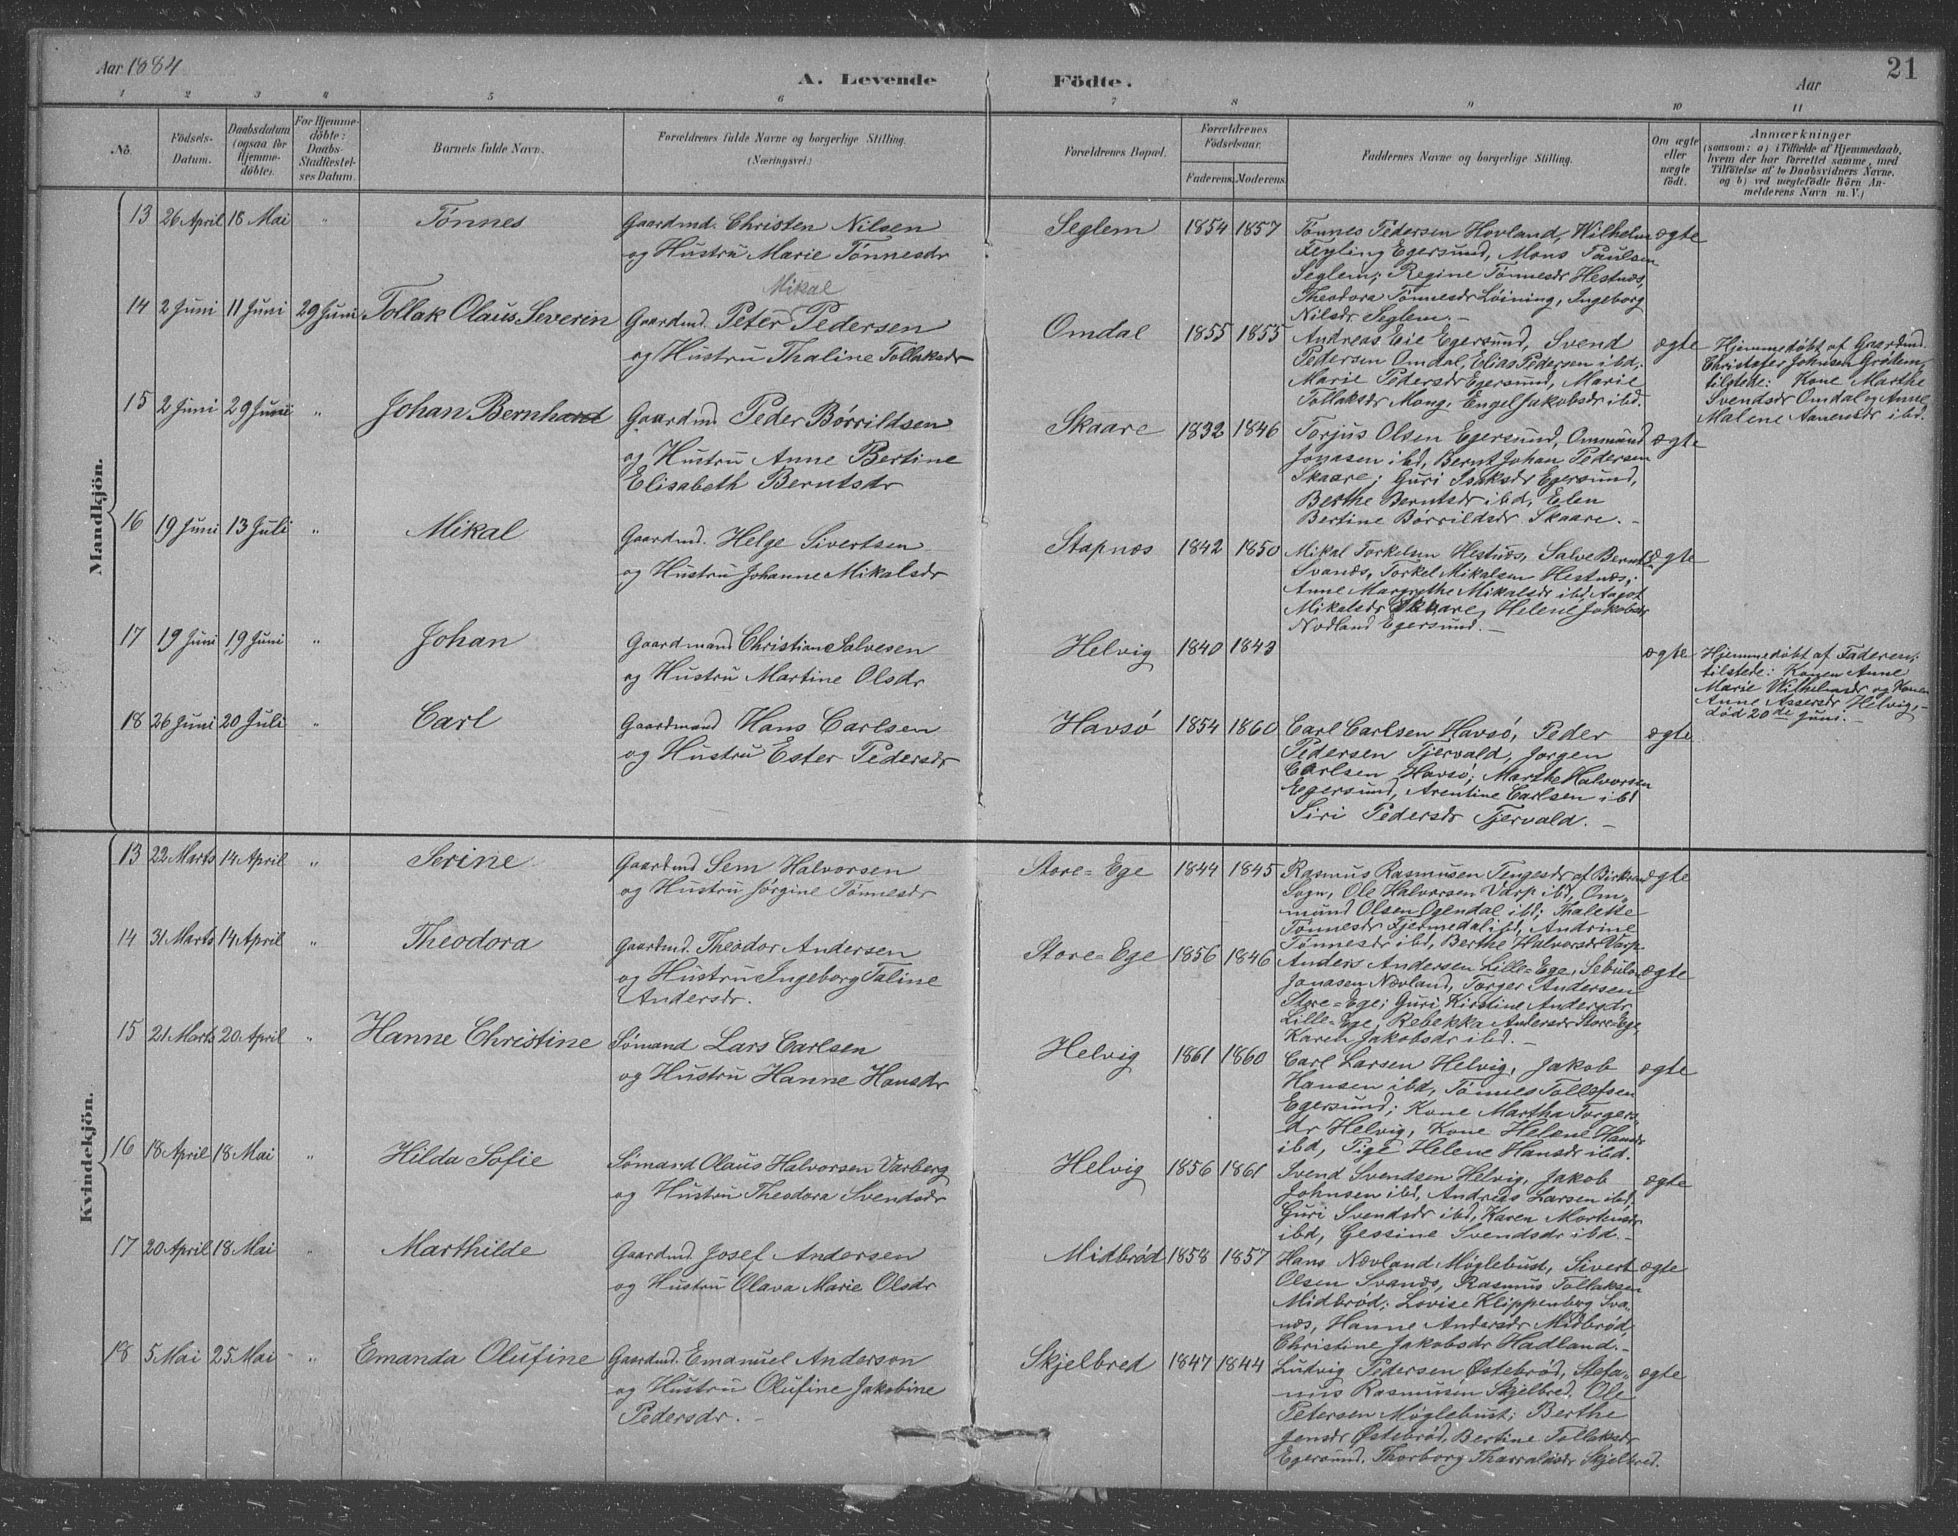 Aar 1884
A. Levende Födte.
Aar
21
1 2 3 4 5 6 7 8 9 10 11
No.
Födsels-
Datum.
Daabsdatum
(ogsaa for
Hjemme-
döbte).
For Hjemme-
döbte:
Daabs-
Stadfæstel-
ses Datum.
Barnets fulde Navn.
Forældrenes fulde Navne og borgerlige Stilling.
(Næringsvei.)
Forældrenes Bopæl.
Forældrenes
Födselsaar.
Faderens. Moderens.
Faddernes Navne og borgerlige Stilling.
Om ægte
eller
uægte
födt.
Anmærkninger
(saasom: a) i Tilfælde af Hjemmedaab,
hvem der har forrettet samme, med
Tilföielse af to Daabsvidners Navne,
og b) ved uægtefödte Börn An-
melderens Navn m. V.)
Mandkjön.
13 26 April 18 Mai " Tönnes
Gaardmd. Christen Nilsen
og Hustru Marie Tönnesdr
Seglem 1854 1857
Tönnes Pedersen Hovland, Wilhelm
Feyling Egersund, Mons Paulsen
Seglem; Regine Tönnesdr Hestnæs,
Theodora Tönnesdr Löining, Ingeborg
Nilsdr Seglem. -
ægte
14 2 Juni 11 Juni 29 Juni Tollak Olaus Severin
Mikal
Gaardmd. Peter Pedersen
og Hustru Thaline Tollaksdr
Omdal 1855 1855
Andreas Eie Egersund, Svend
Pedersen Omdal, Elias Pedersen ibd,;
Marie Pedersdr Egersund, Marie
Tollaksdr Mong, Engel Jakobsdr ibd.
ægte
Hjemmedöbt af Gaardmd.
Christofer Johnsen Grödem,
tilstede: Kone Marthe
Svendsdr Omdal og Anne
Malene Aanensdr ibd.
15 2 Juni 29 Juni " Johan Bernhard
Gaardmd Peder Börrildsen
og Hustru Anne Bertine
Elisabeth Berntsdr
Skaare 1832 1846
Torjus Olsen Egersund, Ommund
Jonasen ibd, Bernt Johan Pedersen
Skaare; Guri Isaksdr Egersund,
Berthe Berntsdr ibd, Elen
Bertine Börrildsdr Skaare. -
ægte
16 19 Juni 13 Juli " Mikal
Gaardmd. Helge Sivertsen
og Hustru Johanne Mikalsdr
Stapnæs 1842 1850
Mikal Torkelsen Hestnæs, Salve Bernts.
Svanæs, Torkel Mikalsen Hestnæs;
Anne Margrethe Mikalsdr ibd, Aagot
Mikalsdr Skaare, Helene Jakobsdr
Nodland Egersund. -
ægte
17 19 Juni 19 Juni " Johan
Gaardmand Christian Salvesen
og Hustru Martine Olsdr
Helvig 1840 1843
ægte
Hjemmedöbt af Faderen;
tilstede: Konen Anne
Marie Wilhelmsdr og Konen
Anne Assersdr Helvig, -
död 20de Juni. -
18 26 Juni 20 Juli " Carl
Gaardmand Hans Carlsen
og Hustru Ester Pedersdr
Havsö 1854 1860
Carl Carlsen Havsö, Peder
Pedersen Tjervald, Jörgen
Carlsen Havsö; Marthe Halvorsen
Egersund, Arentine Carlsen ibd
Siri Pedersdr Tjervald. -
ægte
Kvindekjön.
13 22 Marts 14 April " Serine
Gaardmd Sem Halvorsen
og Hustru Jörgine Tönnesdr
Store-Ege 1844 1845
Rasmus Rasmusen Tengesdr af Birkrem
Sogn, Ole Halvorsen Varp ibd, Om-
mund Olsen Ogendal ibd; Thalette
Tönnesdr Fjermedal ibd, Andrine
Tönnesdr ibd, Berthe Halvorsdr Varp.
ægte
14 31 Marts 14 April " Theodora
Gaardmd. Theodor Andersen
og Hustru Ingeborg Taline
Andersdr.
Store-Ege 1856 1846
Anders Andersen Lille-Ege, Sebulon
Jonasen Nævland, Torger Andersen
Store-Ege; Guri Kirstine Andersdr
Lille-Ege, Rebekka Andersdr Store-Ege,
Karen Jakobsdr ibd. -
ægte
15 21 Marts 20 April " Hanne Christine
Sömand Lars Carlsen
og Hustru Hanne Hansdr
Helvig 1861 1860
Carl Larsen Helvig, Jakob
Hansen ibd, Tönnes Tollefsen
Egersund; Kone Martha Torgers-
dr Helvig, Kone Helene Hansdr
ibd, Pige Helene Hansdr ibd.
ægte
16 18 April 18 Mai " Hilda Sofie
Sömand Olaus Halvorsen Varberg
og Hustru Theodora Svendsdr
Helvig 1856 1861
Svend Svendsen Helvig, Jakob
Johnsen ibd, Andreas Larsen ibd,
Guri Svendsdr ibd, Karen Mortensdr
ibd, Gessine Svendsdr ibd. -
ægte
17 20 April 18 Mai " Marthilde
Gaardmd. Josef Andersen
og Hustru Olava Marie Olsdr
Midbröd 1858 1857
Hans Nævland Möglebust, Sivert
Olsen Svanæs, Rasmus Tollaksen
Midbröd; Lovise Klippenberg Sva-
næs, Hanne Andersdr Midbröd,
Christine Jakobsdr Hadland. -
ægte
18 5 Mai 25 Mai " Emanda Olufine
Gaardmd. Emanuel Anderson
og Hustru Olufine Jakobine
Pedersdr. -
Skjelbred 1847 1844
Ludvig Pedersen Östebröd, Stefa-
nus Rasmusen Skjelbred, Ole
Petersen Möglebust; Berthe
Jensdr Östebröd, Bertine Tollaksdr
Egersund, Thorborg Skjelbred.
ægte